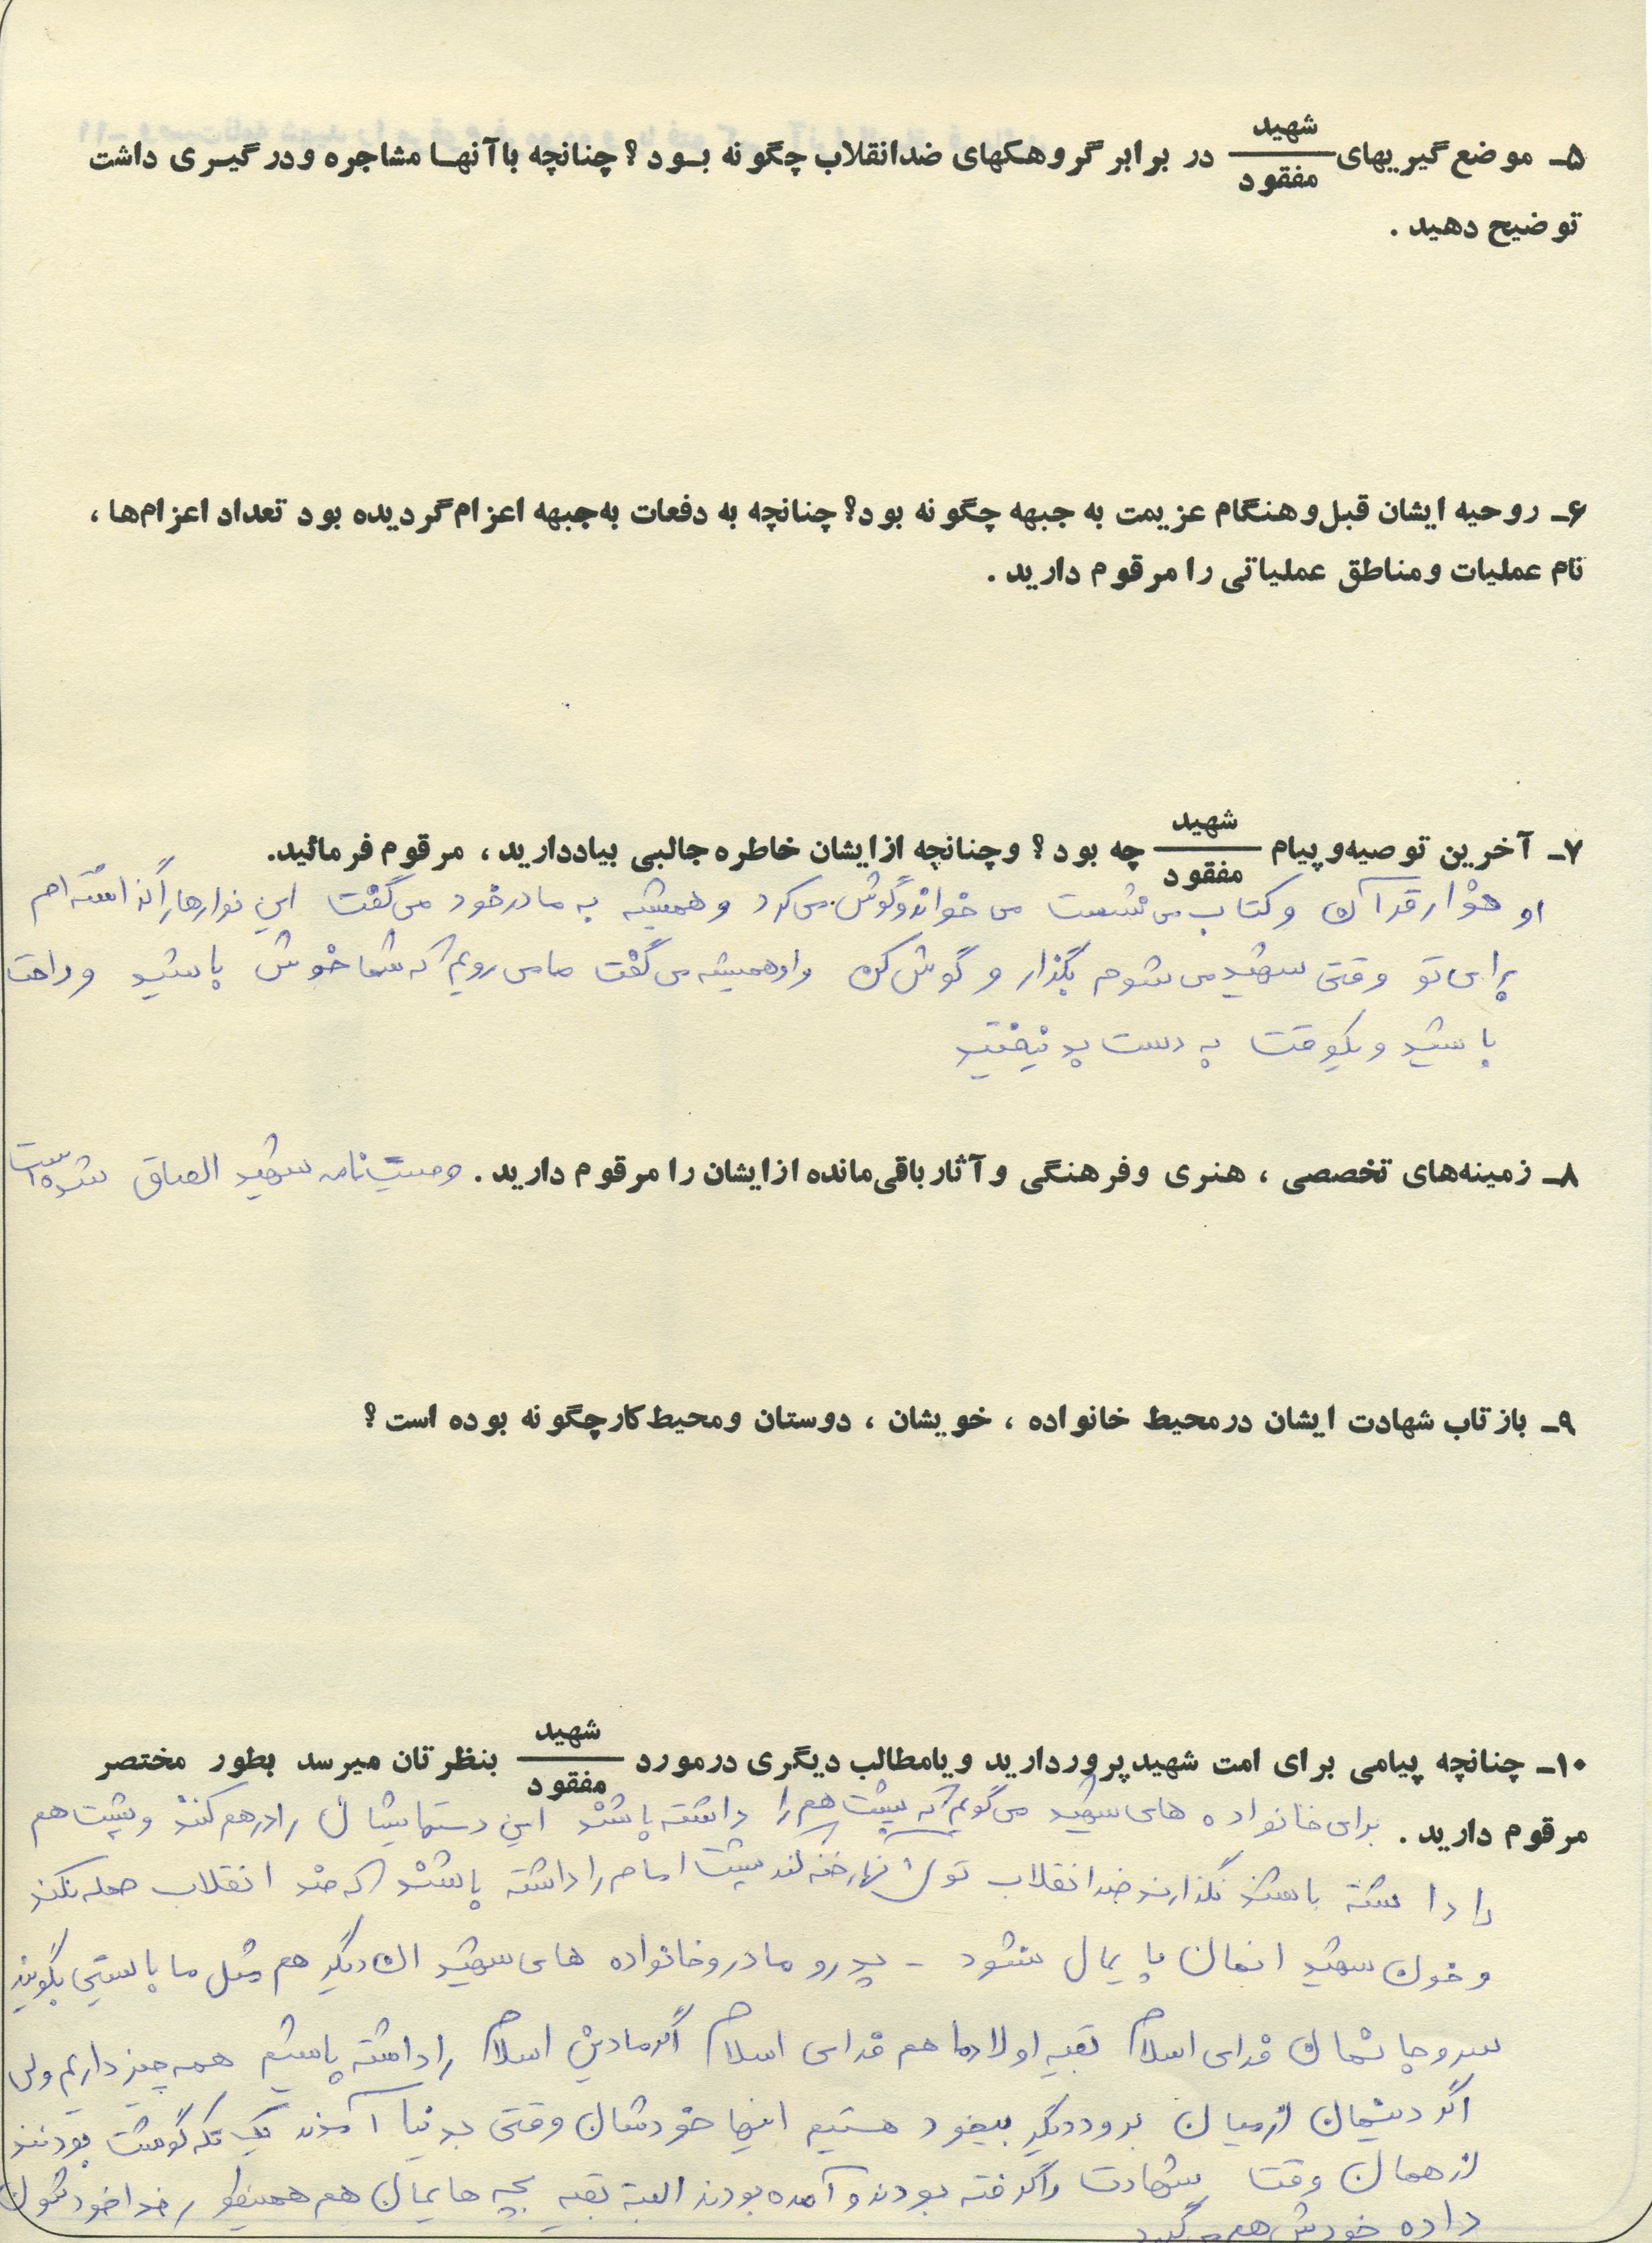 ۵ـ موضع گیریهای شهید/مفقود در برابر گروهکهای ضدانقلاب چگونه بود؟ چنانچه باآنها مشاجره ودرگیری داشت
توضیح دهید .
۶ـ روحیه ایشان قبل وهنگام عزیمت به جبهه چگونه بود؟ چنانچه به دفعات به جبهه اعزام گردیده بود تعداد اعزام‌ها ،
نام عملیات ومناطق عملیاتی را مرقوم دارید .
۷ـ آخرین توصیه‌وپیام شهید/مفقود چه بود؟ وچنانچه ازایشان خاطره جالبی بیاددارید ، مرقوم فرمائید.
او قرآن و کتاب می نشست می خواند و گوش می کرد و همیشه به مادر خود می گفت این نوارها را گذاشته ام
برای تو وقتی شهید می شوم بگذار و گوش کن و او همیشه می گفت ما می رویم که شما خوش باشید و راحت
باشید و یکوقت به دست بد نیفتید
۸ـ زمینه‌های تخصصی ، هنری وفرهنگی وآثارباقی‌مانده ازایشان را مرقوم دارید . وصیت نامه شهید الصاق شده است
۹ـ بازتاب شهادت ایشان درمحیط خانواده ، خویشان ، دوستان ومحیط کارچگونه بوده است ؟
۱۰ـ چنانچه پیامی برای امت شهیدپروردارید ویامطالب دیگری درمورد شهید/مفقود بنظرتان میرسد بطور مختصر
مرقوم دارید . برای خانواده های شهید می گویم که پشت هم را داشته باشند این دستهایشان را در هم کنند و پشت هم
را داشته باشند نگذارند ضد انقلاب توی رخنه کند پشت امام را داشته باشند که ضد انقلاب حمله نکند
و خون شهید پایمال نشود - پدر و مادر و خانواده های شهید دیگر هم مثل ما بایستی بگویند
سر و جانمان فدای اسلام بقیه اولادما هم فدای اسلام اگر ما دین اسلام را داشته باشیم همه چیز داریم ولی
اگر دینمان از میان برود دیگر بیخود هستیم اینها خودشان وقتی بدنیا آمدند یک تکه گوشت بودند
از همان وقت شهادت را گرفته بودند و آمده بودند البته بقیه بچه هایمان هم همینطور خدا خودشون
داده خودش هم